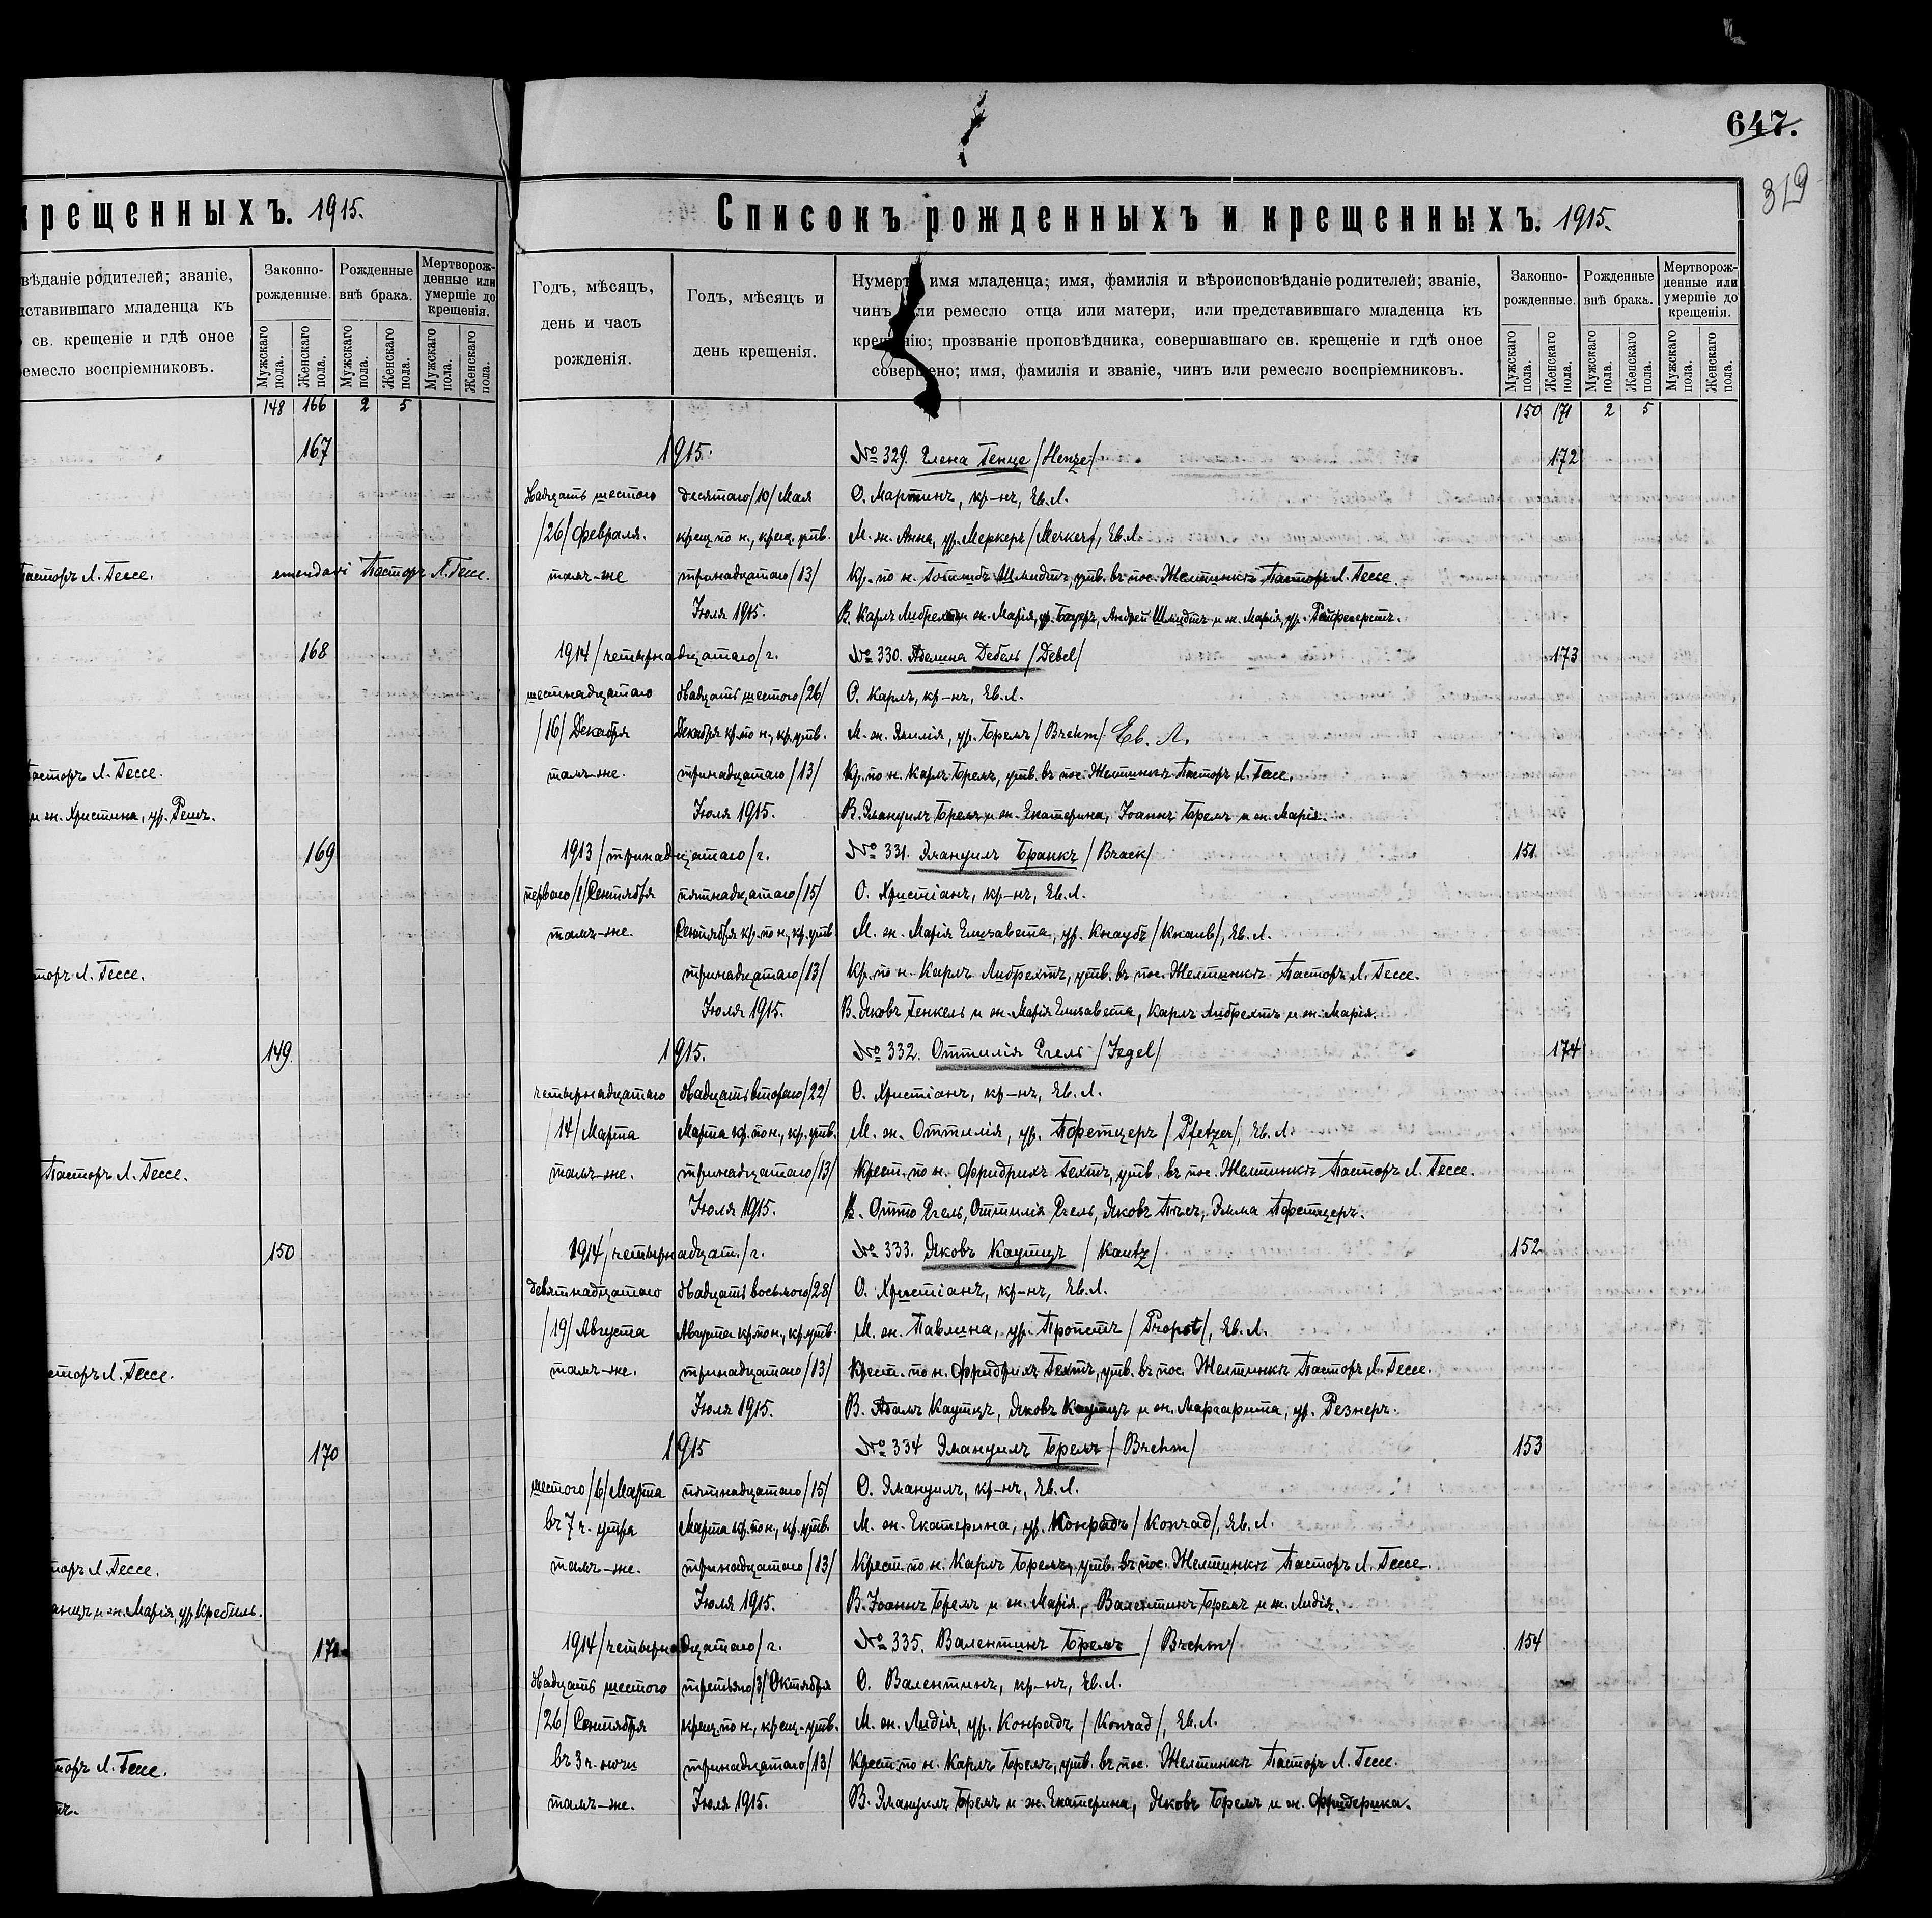 крещенныхъ. 1915.
вѣданіе родителей; званіе,
дставившаго младенца къ
св. крещеніе и гдѣ оное
ремесло воспріемниковъ.
Законно-
рожденные.
Рожденные
внѣ брака.
Мертворож-
денные или
умершіе до
крещенія.
Мужскаго пола.
Женскаго пола.
Мужскаго пола.
Женскаго пола.
Мужскаго пола.
Женскаго пола.
148 166 2 5
167
Пасторъ Л. Гессе. emendavi Пасторъ Л. Гессе.
168
Пасторъ Л. Гессе.
и ж. Христина, ур. Решъ.
169
сторъ Л. Гессе.
149
Пасторъ Л. Гессе.
150
сторъ Л. Гессе.
170
торъ Л. Гессе.
анцъ и ж. Марія, ур. Кребиль.
171
торъ Л. Гессе.
647.
319
Списокъ рожденныхъ и крещенныхъ. 1915.
Годъ, мѣсяцъ,
день и часъ
рожденія.
Годъ, мѣсяцъ и
день крещенія.
Нумеръ, имя младенца; имя, фамилія и вѣроисповѣданіе родителей; званіе,
чинъ или ремесло отца или матери, или представившаго младенца къ
крещенію; прозваніе проповѣдника, совершавшаго св. крещеніе и гдѣ оное
совершено; имя, фамилія и званіе, чинъ или ремесло воспріемниковъ.
Законно-
рожденные.
Рожденные
внѣ брака.
Мертворож-
денные или
умершіе до
крещенія.
Мужскаго пола.
Женскаго пола.
Мужскаго пола.
Женскаго пола.
Мужскаго пола.
Женскаго пола.
150 171 2 5
1915. № 329. Елена Генце /Henze/ 172
двадцать шестого десятаго /10/ Мая О. Мартинъ, кр-нъ, Ев. Л.
/26/ февраля. крещ. по н., крещ. утв. М. ж. Анна, ур. Меркеръ /Merker/, Ев. Л.
тамъ-же тринадцатаго /13/ Кр. по н. Готлибъ Шмидтъ, утв. въ пос. Желтинкѣ Пасторъ Л. Гессе.
Іюля 1915. В. Карлъ Либрехтъ и ж. Марія, ур. Бауеръ, Андрей Шмидтъ и ж. Марія, ур.
1914 /четырнадцатаго/ г. № 330. Аделина Дебель /Debel/ 173
шестнадцатаго двадцать шестого /26/ О. Карлъ, кр-нъ, Ев. Л.
/16/ Декабря Декабря кр. по н., кр. утв. М. ж. Эмилія, ур. Бремъ /Brehm/ Ев. Л.
тамъ-же. тринадцатаго /13/ Кр. по н. Карлъ Бремъ, утв. въ пос. Желтинкѣ Пасторъ Л. Гессе.
Іюля 1915. В. Эмануилъ Бремъ и ж. Екатерина, Іоаннъ Бремъ и ж. Марія.
1913 /тринадцатаго/ г. № 331. Эмануилъ Браккъ /Brack/ 151
перваго /1/ Сентября пятнадцатаго /15/ О. Христіанъ, кр-нъ, Ев. Л.
тамъ-же. Сентября кр. по н., кр. утв. М. ж. Марія Елизавета, ур. Кнаубъ /Knaub/, Ев. Л.
тринадцатаго /13/ Кр. по н. Карлъ Либрехтъ, утв. въ пос. Желтинкѣ Пасторъ Л. Гессе.
Іюля 1915. В. Яковъ Генкель и ж. Марія Елизавета, Карлъ Либрехтъ и ж. Марія.
1915. № 332. Оттилія Егель /Jegel/ 174
четырнадцатаго двадцать второго /22/ О. Христіанъ, кр-нъ, Ев. Л.
/14/ Марта Марта кр. по н., кр. утв. М. ж. Оттилія, ур. Пфетцеръ /Pfetzer/, Ев. Л.
тамъ-же. тринадцатаго /13/ Крест. по н. Фридрихъ Гехтъ, утв. въ пос. Желтинкѣ Пасторъ Л. Гессе.
Іюля 1915. В. Отто Егель, Оттилія Егель, Яковъ Эмма Пфетцеръ.
1914 /четырнадцат./ г. № 333. Яковъ Каутцъ /Kautz/ 152
девятнадцатаго двадцать восьмого /28/ О. Христіанъ, кр-нъ, Ев. Л.
/19/ Августа Августа кр. по н., кр. утв. М. ж. Павлина, ур. Пропстъ /Propst/, Ев. Л.
тамъ-же. тринадцатаго /13/ Крест. по н. Фридрихъ Гехтъ, утв. въ пос. Желтинкѣ Пасторъ Л. Гессе.
Іюля 1915. В. Адамъ Каутцъ, Яковъ Каутцъ и ж. Маргарита, ур. Резнеръ.
1915 № 334 Эмануилъ Бремъ /Brehm/ 153
шестого /6/ Марта пятнадцатаго /15/ О. Эмануилъ, кр-нъ, Ев. Л.
въ 7 ч. утра Марта кр. по н., кр. утв. М. ж. Екатерина, ур. Конрадъ /Konrad/, Ев. Л.
тамъ-же. тринадцатаго /13/ Крест. по н. Карлъ Бремъ, утв. въ пос. Желтинкѣ Пасторъ Л. Гессе.
Іюля 1915. В. Іоаннъ Бремъ и ж. Марія, Валентинъ Бремъ и ж. Лидія.
1914 /четырнадцатаго/ г. № 335. Валентинъ Бремъ /Brehm/ 154
двадцать шестого третьяго /3/ Октября О. Валентинъ, кр-нъ, Ев. Л.
/26/ Сентября крещ. по н., крещ. утв. М. ж. Лидія, ур. Конрадъ /Konrad/, Ев. Л.
въ 3 ч. ночи тринадцатаго /13/ Крест. по н. Карлъ Бремъ, утв. въ пос. Желтинкѣ Пасторъ Л. Гессе.
тамъ-же. Іюля 1915. В. Эмануилъ Бремъ и ж. Екатерина, Яковъ Бремъ и ж. Фридерика.